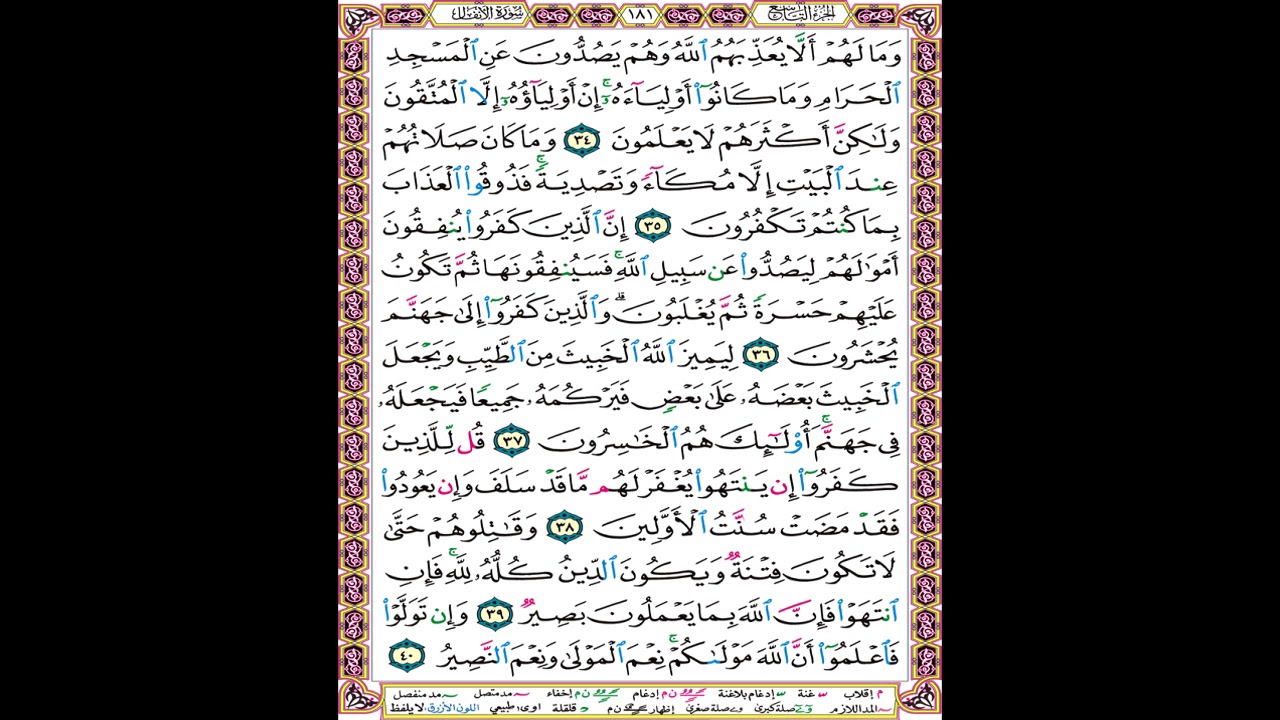 الجزء التاسع ١٨١ سورة الأنفال
وَمَا لَهُمْ أَلَّا يُعَذِّبَهُمُ ٱللَّهُ وَهُمْ يَصُدُّونَ عَنِ ٱلْمَسْجِدِ
ٱلْحَرَامِ وَمَا كَانُوٓا۟ أَوْلِيَآءَهُۥٓۚ إِنْ أَوْلِيَآؤُهُۥٓ إِلَّا ٱلْمُتَّقُونَ
وَلَٰكِنَّ أَكْثَرَهُمْ لَا يَعْلَمُونَ ٣٤ وَمَا كَانَ صَلَاتُهُمْ
عِندَ ٱلْبَيْتِ إِلَّا مُكَآءً وَتَصْدِيَةًۚ فَذُوقُوا۟ ٱلْعَذَابَ
بِمَا كُنتُمْ تَكْفُرُونَ ٣٥ إِنَّ ٱلَّذِينَ كَفَرُوا۟ يُنفِقُونَ
أَمْوَٰلَهُمْ لِيَصُدُّوا۟ عَن سَبِيلِ ٱللَّهِۚ فَسَيُنفِقُونَهَا ثُمَّ تَكُونُ
عَلَيْهِمْ حَسْرَةً ثُمَّ يُغْلَبُونَۗ وَٱلَّذِينَ كَفَرُوٓا۟ إِلَىٰ جَهَنَّمَ
يُحْشَرُونَ ٣٦ لِيَمِيزَ ٱللَّهُ ٱلْخَبِيثَ مِنَ ٱلطَّيِّبِ وَيَجْعَلَ
ٱلْخَبِيثَ بَعْضَهُۥ عَلَىٰ بَعْضٍ فَيَرْكُمَهُۥ جَمِيعًا فَيَجْعَلَهُۥ
فِى جَهَنَّمَۚ أُو۟لَٰٓئِكَ هُمُ ٱلْخَٰسِرُونَ ٣٧ قُل لِّلَّذِينَ
كَفَرُوٓا۟ إِن يَنتَهُوا۟ يُغْفَرْ لَهُم مَّا قَدْ سَلَفَ وَإِن يَعُودُوا۟
فَقَدْ مَضَتْ سُنَّتُ ٱلْأَوَّلِينَ ٣٨ وَقَٰتِلُوهُمْ حَتَّىٰ
لَا تَكُونَ فِتْنَةٌ وَيَكُونَ ٱلدِّينُ كُلُّهُۥ لِلَّهِۚ فَإِنِ
ٱنتَهَوْا۟ فَإِنَّ ٱللَّهَ بِمَا يَعْمَلُونَ بَصِيرٌ ٣٩ وَإِن تَوَلَّوْا۟
فَٱعْلَمُوٓا۟ أَنَّ ٱللَّهَ مَوْلَىٰكُمْۚ نِعْمَ ٱلْمَوْلَىٰ وَنِعْمَ ٱلنَّصِيرُ ٤٠
م إقلاب غنة إدغام بلاغنة ن م إدغام ن م إخفاء مد متصل مد منفصل
المد اللازم صلة كبرى صلة صغرى إظهار ن م قلقلة طبيعي اللون الأزرق لا يلفظ